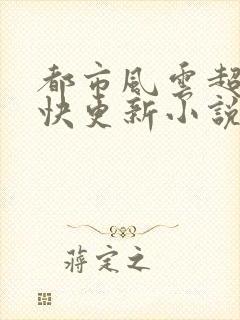 都市風雲超
快更新小說
蔣定之